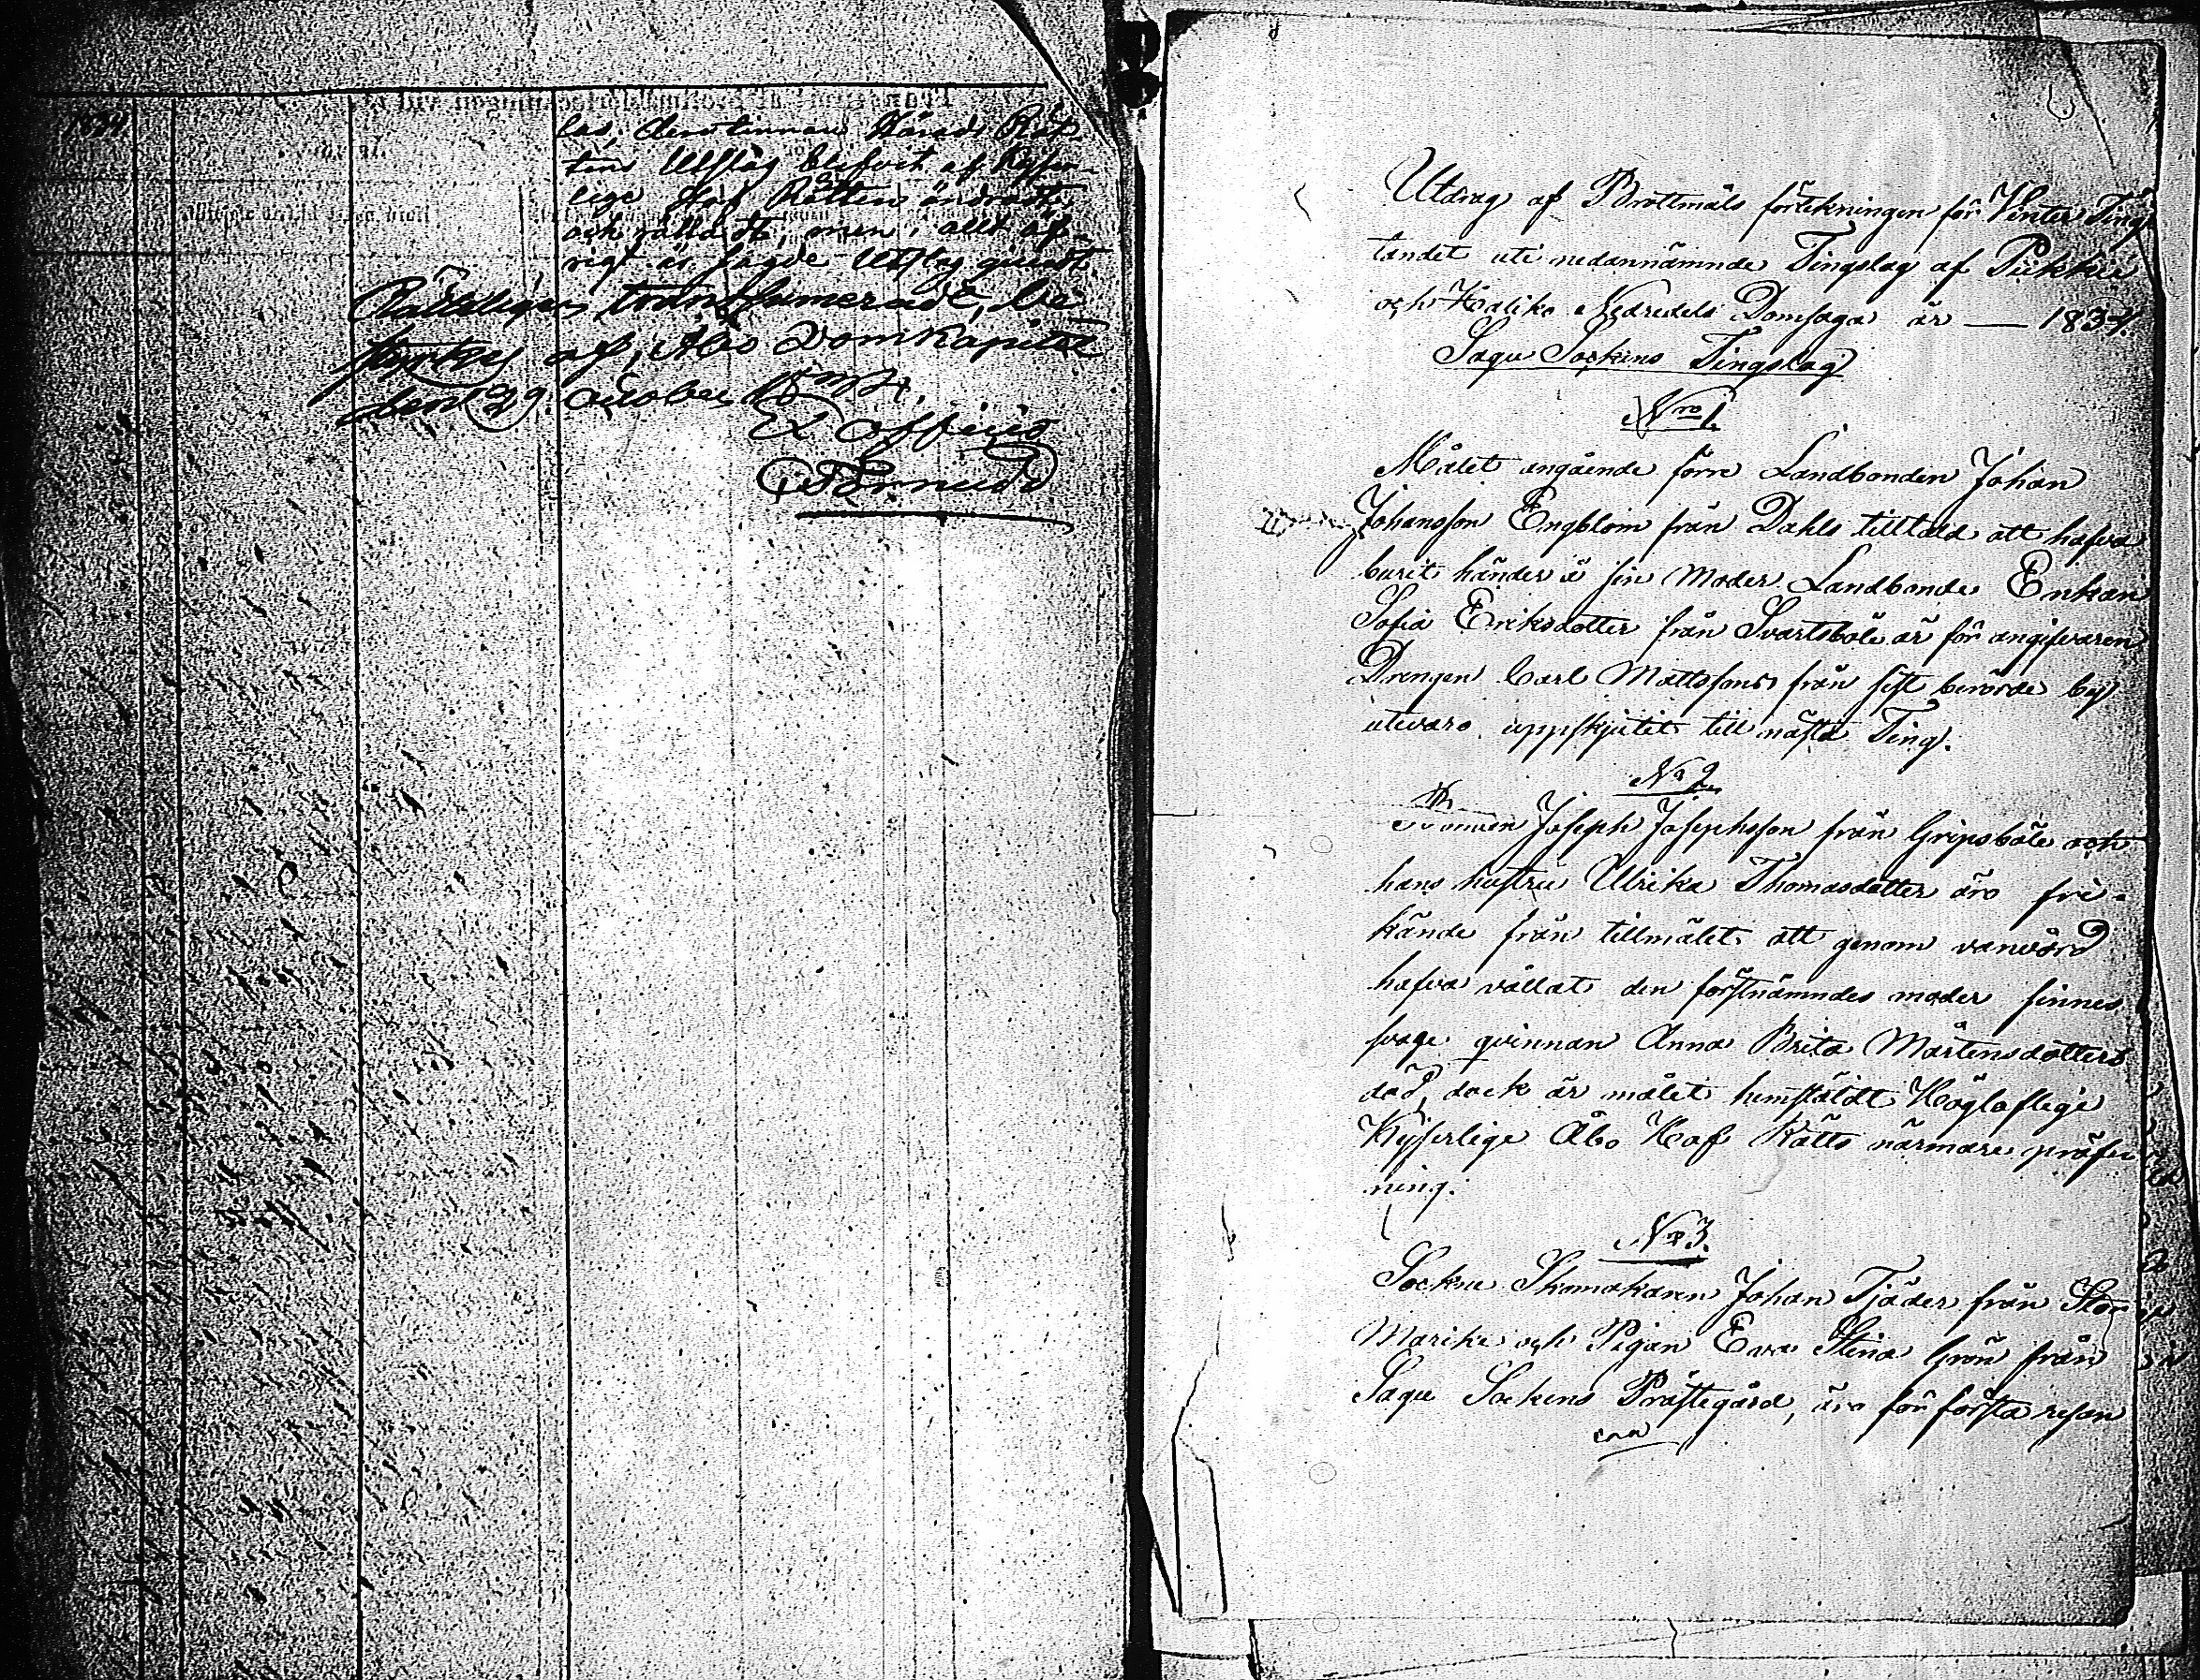 1834
las; derstinnau Härads Rät
tens Utslag blifvit af Kejser-
lige Hof Rätten ändradt
och rättadt, men i allt öf-
rigt är sagde Utslag gillat.
Rätteligen transsumeradt, be-
styrkes af; Åbo Domkapitel
den 29 October 1834.
Ex officio
Törnudd
Utdrag af Brottmåls förtekningen för Vinter Tings
tandet uti nedannämnde Tingslag af Pikkie
och Haliko Nedredels Domsaga år — 1834.
Sagu Sockens Tingslag
Nro 1.
Målet angående förre Landbonden Johan
Johansson Engblom från Dahls tilltald att hafva
burit händer å sin moder Landbonde Enkan
Sofia Eriksdotter från Svartsböle är för angifvaren
Drengen Carl Mattssons från sist berörde by
utevaro uppskjutit till nästa Ting.
No 2.
Joseph Josephsson från Gripsböle och
hans hustru Ulrika Thomasdotter äro fri-
kände från tillmålet att genom vanvård
hafva vållat den förstnämndes moder sinnes
svage qvinnan Anna Brita Mårtensdotters
död, dock är målet hemstäldt Högloflige
Kejserlige Åbo Hof Rätts närmare pröf
ning.
No 3.
Sockne Skomakaren Johan Tjäder från Stor
Marike och Pigan Eva Stina Grön från
Sagu Sockens Prästegård, äro för första resan